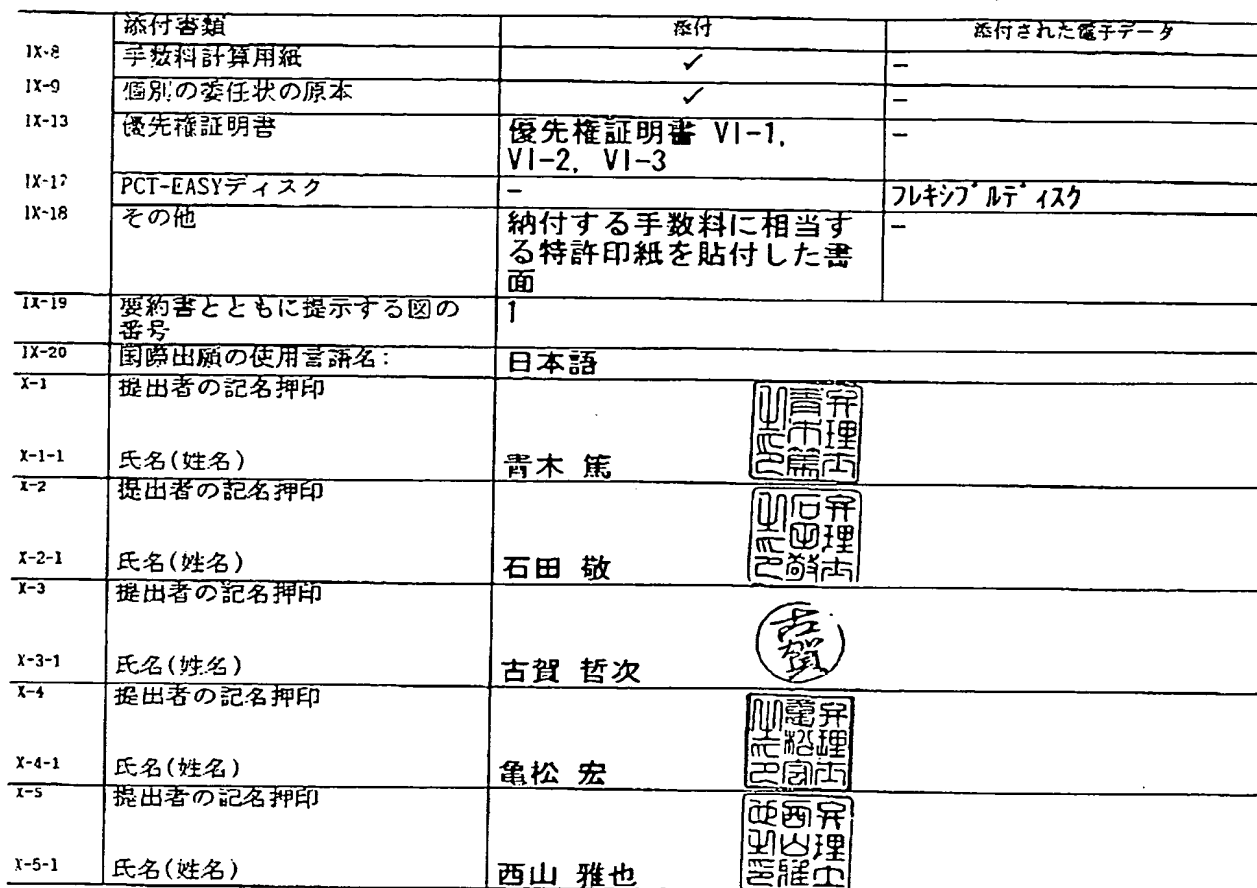 添付書類 添付 添付された電子データ
IX-8 手数料計算用紙 ✓ -
IX-9 個別の委任状の原本 ✓ -
IX-13 優先権証明書 優先権証明書 VI-1, -
VI-2, VI-3
IX-17 PCT-EASYディスク - フレキシブルディスク
IX-18 その他 納付する手数料に相当す -
る特許印紙を貼付した書
面
IX-19 要約書とともに提示する図の 1
番号
IX-20 国際出願の使用言語名: 日本語
X-1 提出者の記名押印
弁理士青木篤之印
X-1-1 氏名(姓名) 青木 篤
X-2 提出者の記名押印
弁理士石田敬之印
X-2-1 氏名(姓名) 石田 敬
X-3 提出者の記名押印
古賀
X-3-1 氏名(姓名) 古賀 哲次
X-4 提出者の記名押印
弁理士亀松宏之印
X-4-1 氏名(姓名) 亀松 宏
X-5 提出者の記名押印
弁理士西山雅也之印
X-5-1 氏名(姓名) 西山 雅也